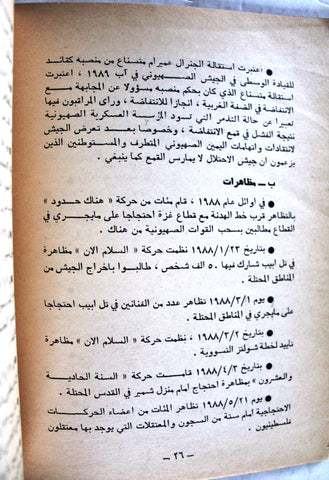 ● اعتبرت استقالة الجنرال عميرام متسناع من منصبه كقائد
للقيادة الوسطى في الجيش الصهيوني في آب ١٩٨٩ ، اعتبرت
استقالة متسناع الذي كان بحكم منصبه مسؤولا عن المجابهة مع
الانتفاضة في الضفة الغربية ، انجازا للانتفاضة ، وراى المراقبون فيها
تعبيرا عن حالة التذمر التي تسود المؤسسة العسكرية الصهيونية
نتيجة الفشل في قمع الانتفاضة ، وخصوصا بعد تعرض الجيش
لانتقادات واتهامات اليمين الصهيوني المتطرف والمستوطنين الذين
يزعمون ان جيش الاحتلال لا يمارس القمع كما ينبغي .
ب ــ مظاهرات
● في اوائل عام ١٩٨٨ ، قام مئات من حركة « هناك حدود »
بالتظاهر قرب خط الهدنة مع قطاع غزة احتجاجا على مايجري في
القطاع مطالبين بسحب القوات الصهيونية منه .
● بتاريخ ١٩٨٨/١/٢٣ نظمت حركة « السلام الان » مظاهرة
في تل ابيب شارك فيها ٥٠ الف شخص ، طالبوا باخراج الجيش من
المناطق المحتلة .
● يوم ١٩٨٨/٣/١ تظاهر عدد من الفنانين في تل ابيب احتجاجا
على مايجري في المناطق المحتلة .
● بتاريخ ١٩٨٨/٣/٢ ، نظمت حركة « السلام الان » مظاهرة
تأييد لخطة شولتز التسووية .
● بتاريخ ١٩٨٨/٤/٣ قامت حركة « السنة الحادية
والعشرون » بمظاهرة احتجاج امام منزل شمير في القدس المحتلة .
● يوم ١٩٨٨/٥/٢١ تظاهر المئات من اعضاء الحركات
الاحتجاجية امام ستة من السجون والمعتقلات التي يوجد بها معتقلون
فلسطينيون .
ــ ٢٦ ــ